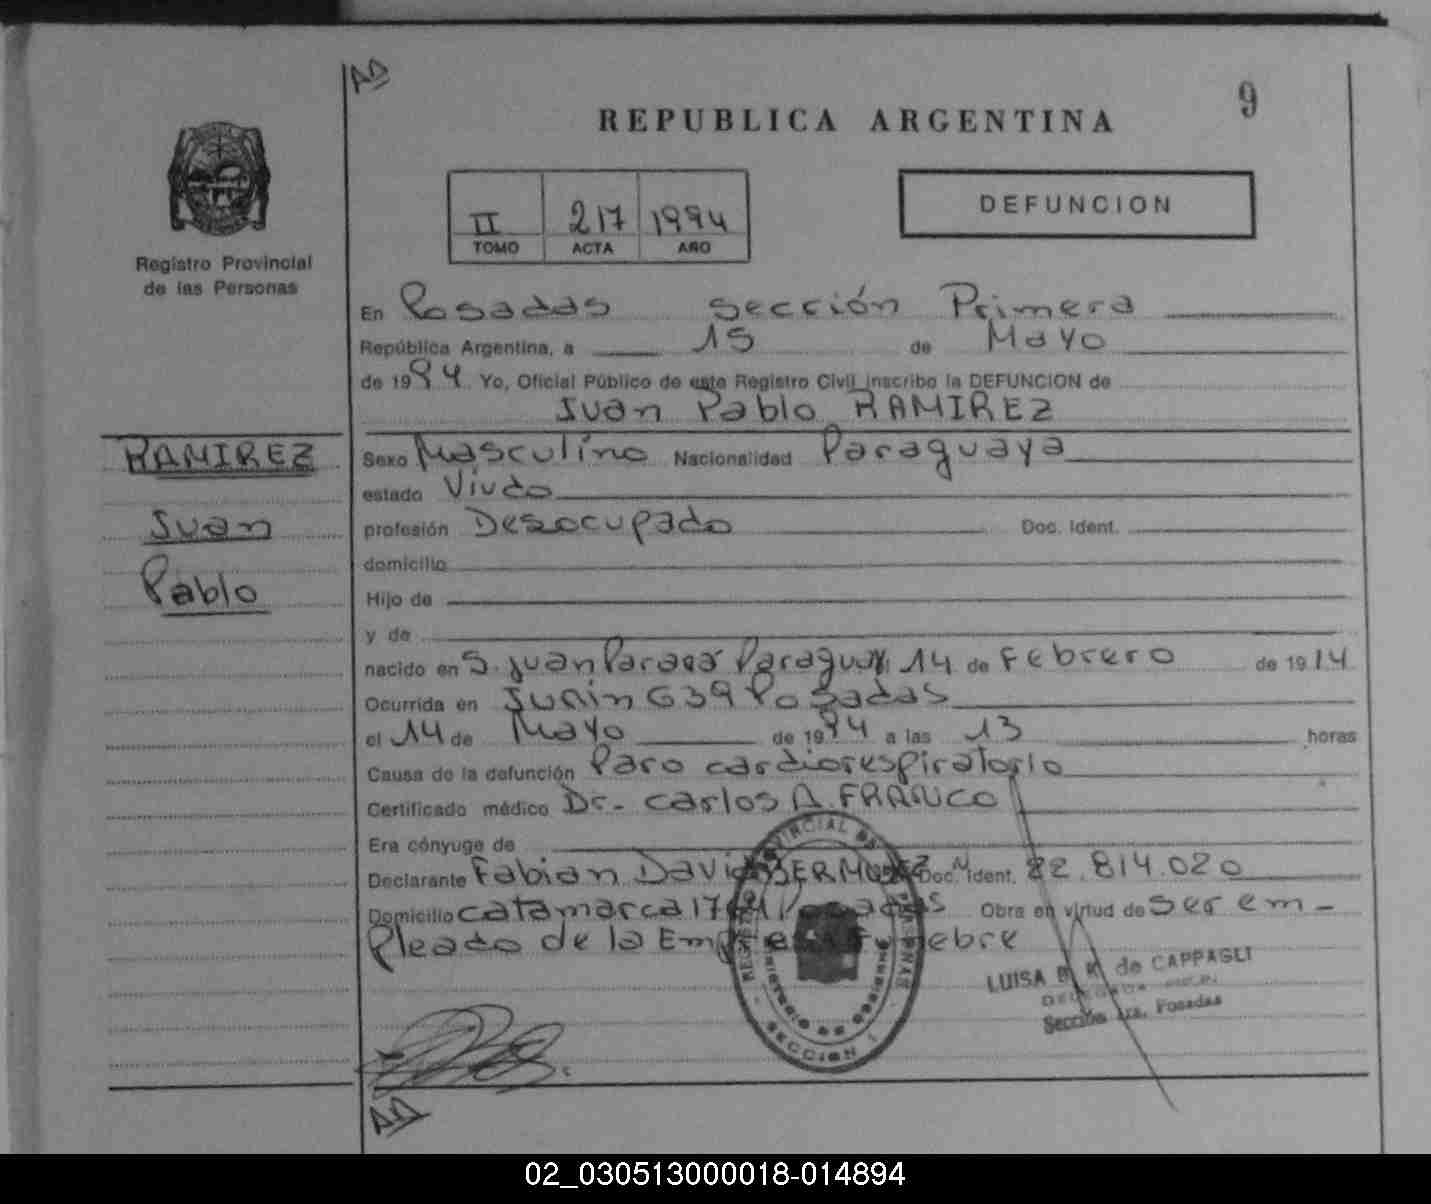 AD
9
REPUBLICA ARGENTINA
II 217 1994
TOMO ACTA AÑO
DEFUNCION
Registro Provincial
de las Personas
En Posadas sección Primera
República Argentina, a 15 de Mayo
de 1994 Yo, Oficial Público de este Registro Civil inscribo la DEFUNCION de
Juan Pablo RAMIREZ
RAMIREZ
Juan
Pablo
Sexo Masculino Nacionalidad Paraguaya
estado Viudo
profesión Desocupado Doc. Ident.
domicilio
Hijo de
y de
nacido en S. Juan Paraguay 14 de Febrero de 1914
Ocurrida en Junin 639 Posadas
el 14 de Mayo de 1994 a las 13 horas
Causa de la defunción Paro cardiorespiratorio
Certificado médico Dr. Carlos A. FRANCO
Era cónyuge de
Declarante Fabian David BERMUDEZ Doc. Ident. 22.814.020
Domicilio catamarca Posadas Obra en virtud de ser em-
pleado de la Empresa Funebre
LUISA de CAPPAGLI
DELEGADA
Sección 1ra. Posadas
REGISTRO PROVINCIAL DE LAS PERSONAS
MINISTERIO DE GOBIERNO
SECCION 1
AD
02_030513000018-014894